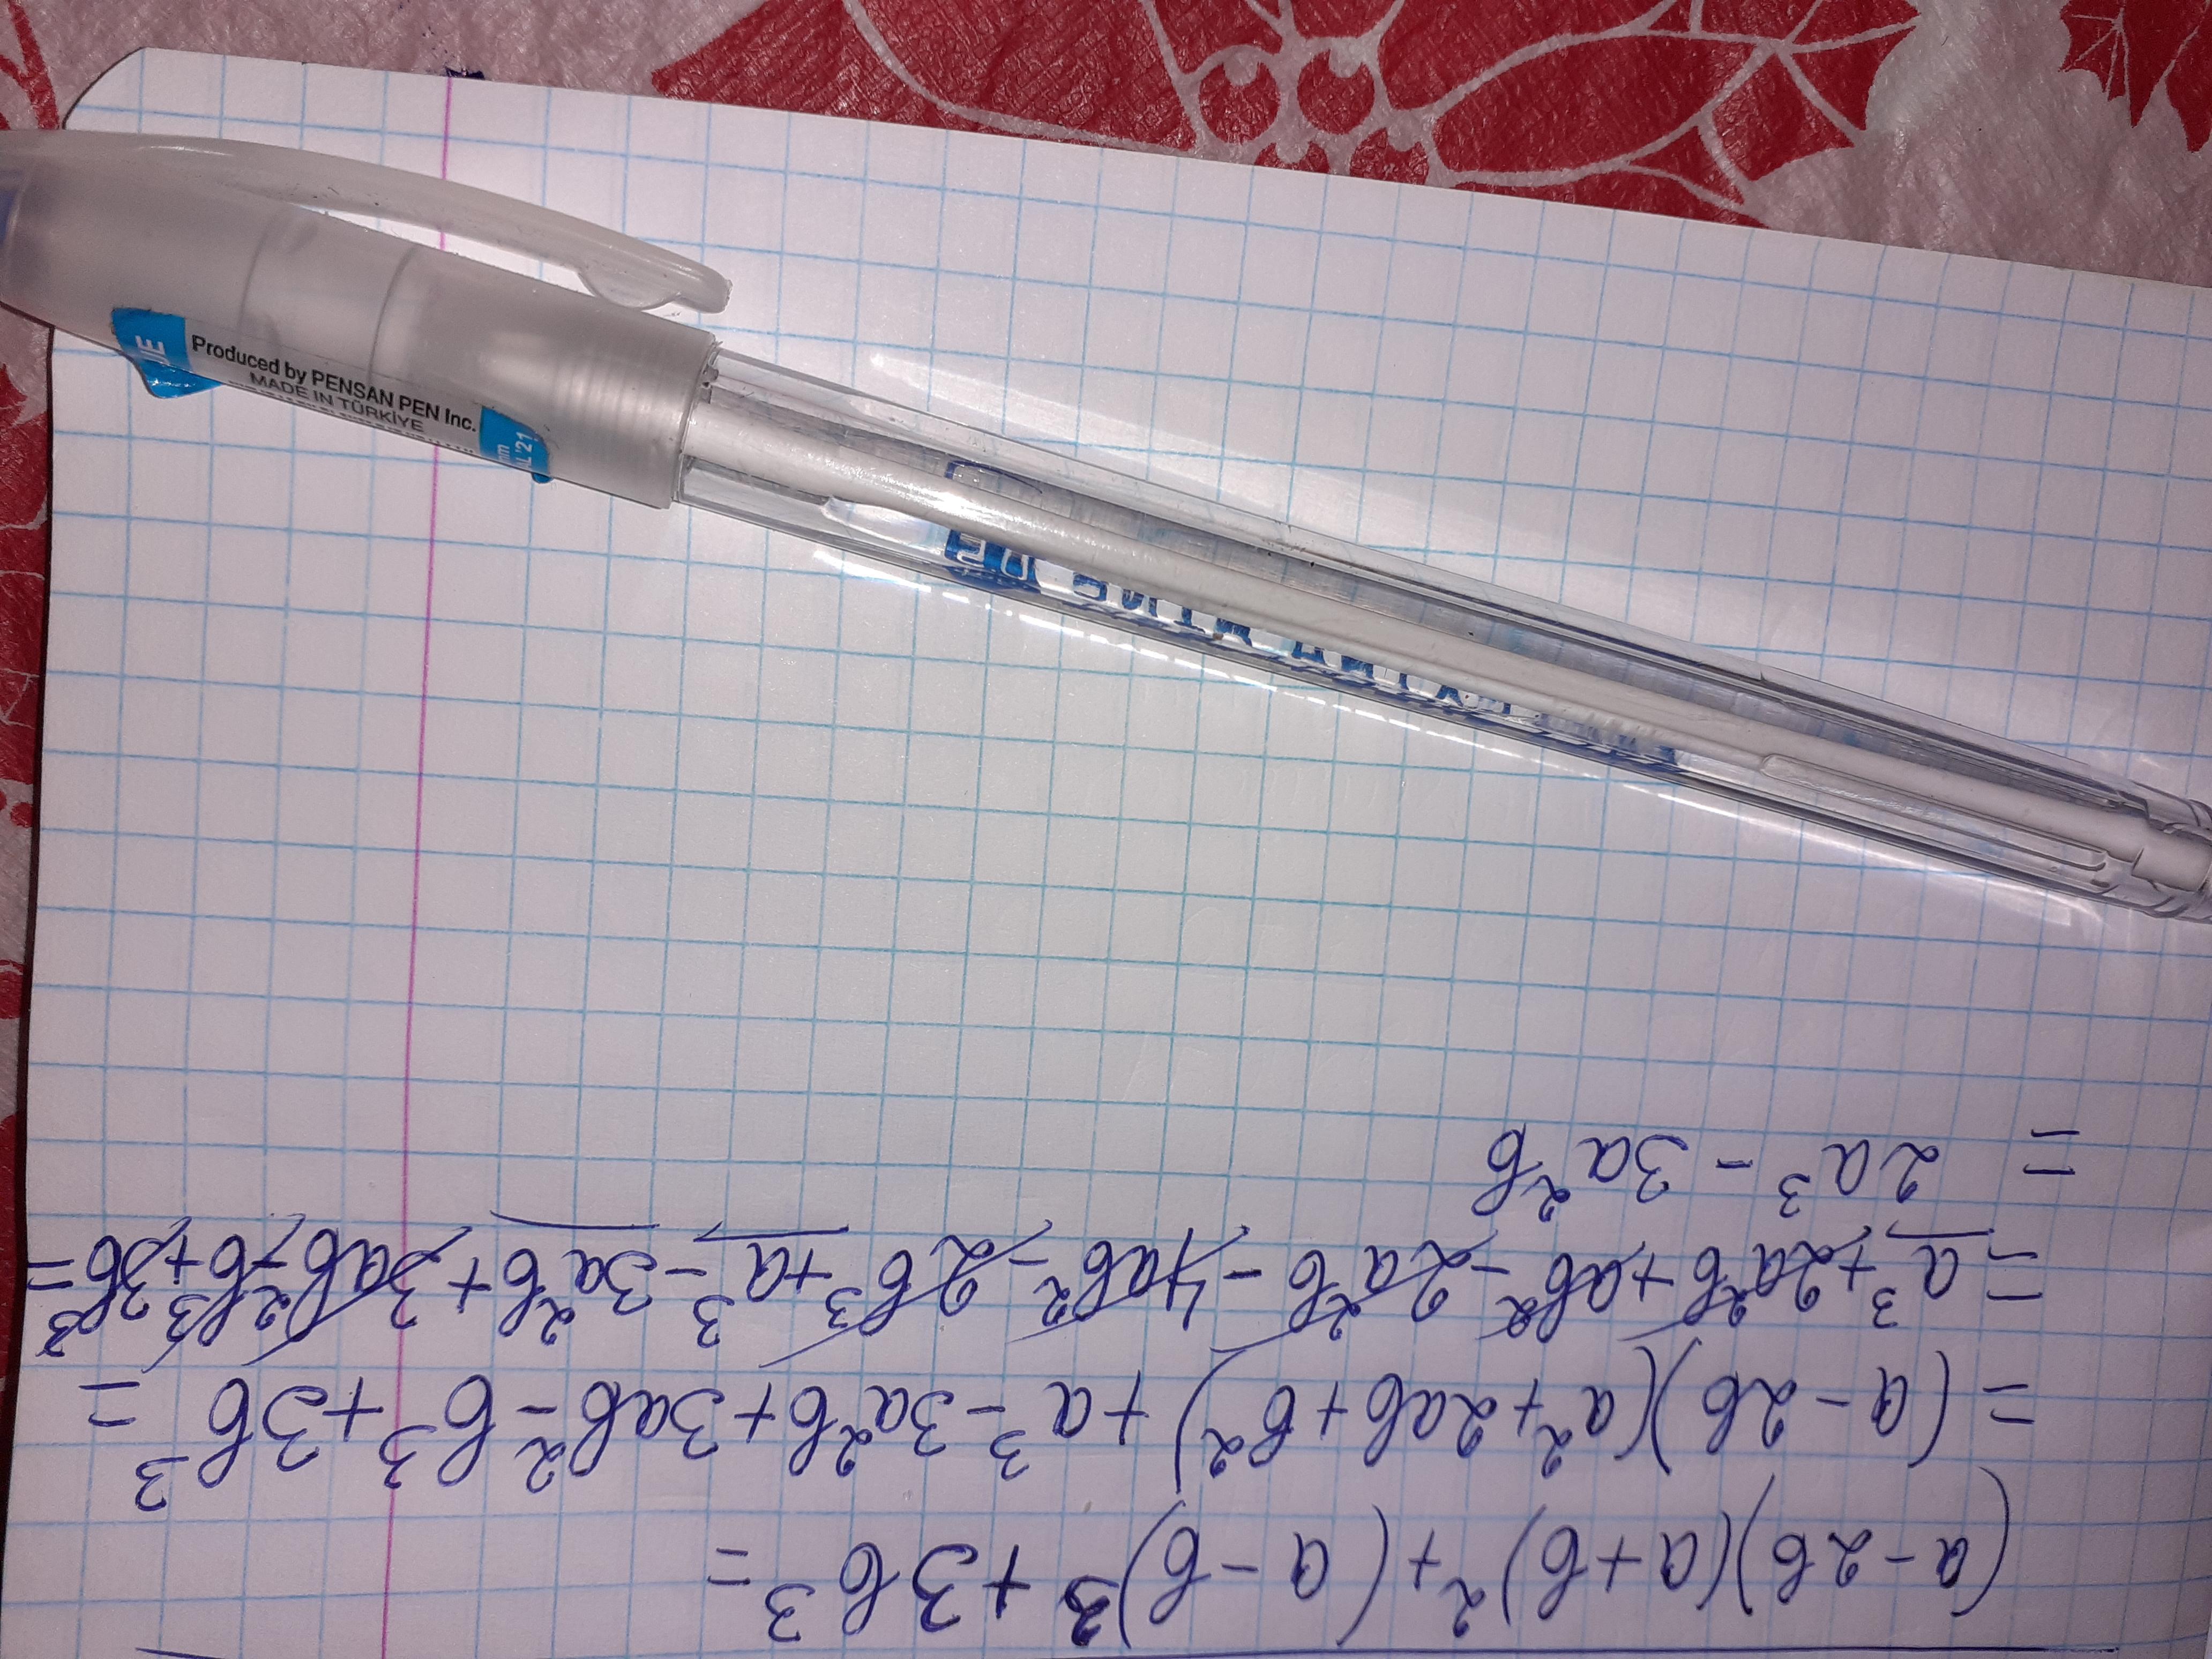 UE
Produced by PENSAN PEN Inc.
MADE IN TÜRKİYE
mm
L'21
(a-2b)(a+b)²+(a-b)³+3b³=
=(a-2b)(a²+2ab+b²)+a³-3a²b+3ab²-b³+3b³=
=a³+2a²b+ab²-2a²b-4ab²-2b³+a³-3a²b+3ab²-b³+3b³=
=2a³-3a²b